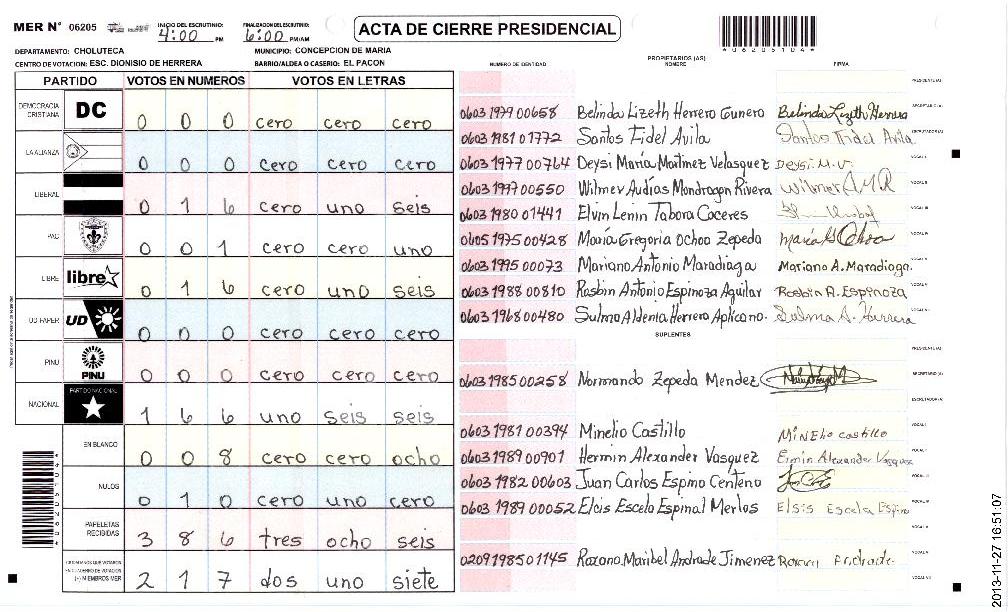 MER N° 06205 INICIO DEL ESCRUTINIO: 4:00 PM FINALIZACION DEL ESCRUTINIO: 6:00 PM/AM
ACTA DE CIERRE PRESIDENCIAL
DEPARTAMENTO: CHOLUTECA MUNICIPIO: CONCEPCION DE MARIA
CENTRO DE VOTACION: ESC. DIONISIO DE HERRERA BARRIO/ALDEA O CASERIO: EL PACON
PARTIDO VOTOS EN NUMEROS VOTOS EN LETRAS
DEMOCRACIA CRISTIANA DC 0 0 0 cero cero cero
LA ALIANZA 0 0 0 cero cero cero
LIBERAL 0 1 6 cero uno seis
PAC 0 0 1 cero cero uno
LIBRE libre 0 1 6 cero uno seis
UD-FAPER UD 0 0 0 cero cero cero
PINU PINU 0 0 0 cero cero cero
NACIONAL PARTIDO NACIONAL 1 6 6 uno seis seis
EN BLANCO 0 0 8 cero cero ocho
NULOS 0 1 0 cero uno cero
PAPELETAS RECIBIDAS 3 8 6 tres ocho seis
(+) MIEMBROS MER 2 1 7 dos uno siete
PROPIETARIOS (AS)
NUMERO DE IDENTIDAD NOMBRE FIRMA
PRESIDENTE(A)
0603 1979 00658 Belinda Lizeth Herrero Gunero Belinda Lizeth Herrera SECRETARIO(A)
0603 1981 01772 Santos Fidel Avila Santos Fidel Avila
0603 1977 00764 Deysi María Martinez Velasquez Deysi M. v. VOCAL I
0603 1977 00550 Wilmer Audias Mondragon Rivera Wilmer A.M.R VOCAL II
0603 1980 01441 Elvin Lenin Tabora Caceres VOCAL III
0605 1975 00428 María Gregoria Ochoa Zepeda María G Ochoa VOCAL IV
0603 1995 00073 Mariano Antonio Maradiaga Mariano A. Maradiaga. VOCAL V
0603 1988 00810 Rosbin Antonio Espinoza Aguilar Rosbin A. Espinoza VOCAL VI
0603 1968 00480 Sulma Aldenia Herrero Aplicano. Sulma A. Herrera VOCAL VII
SUPLENTES
PRESIDENTE(A)
0603 1985 00258 Normando Zepeda Mendez SECRETARIO(A)
ESCRUTADOR(A)
0603 1981 00394 Minelio Castillo Minelio castillo VOCAL I
0603 1989 00901 Hermin Alexander Vasquez Ermin Alexander Vasquez VOCAL II
0603 1982 00603 Juan Carlos Espino Centeno VOCAL III
0603 1989 00052 Elcis Escelo Espinal Merlos Elsis Escela Espino VOCAL IV
VOCAL V
0209 1985 01145 Roxana Maribel Andrade Jimenez Andrade VOCAL VI
VOCAL VII
2013-11-27 16:51:07